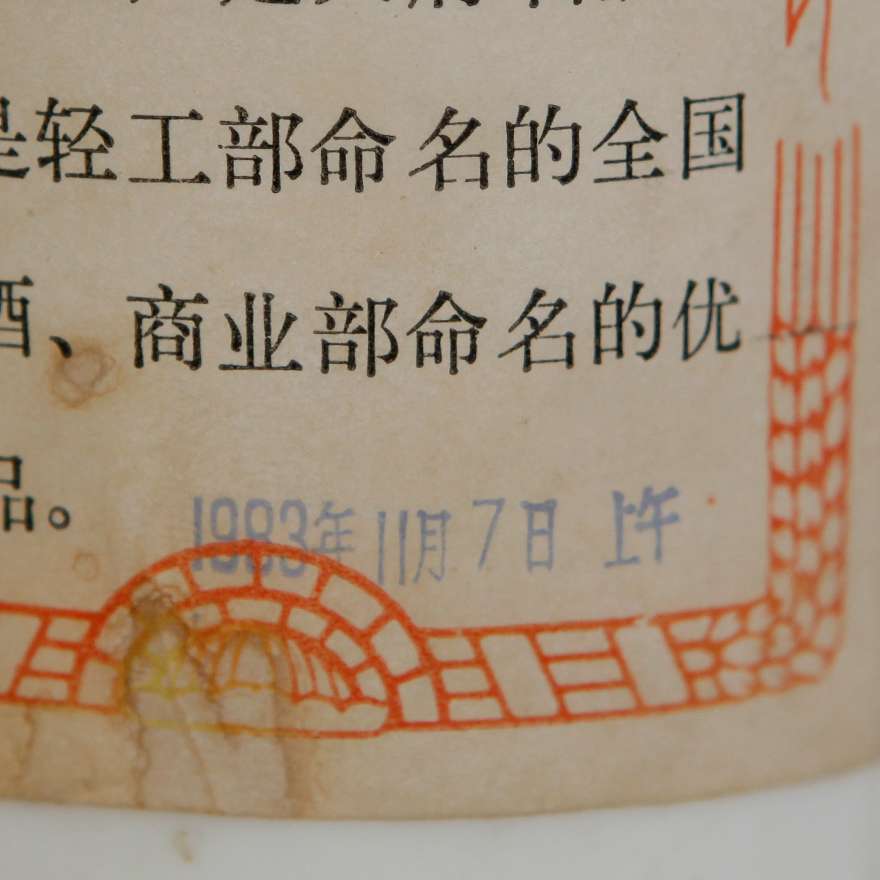 是轻工部命名的全国
酒、商业部命名的优
品。
1983年11月7日 上午